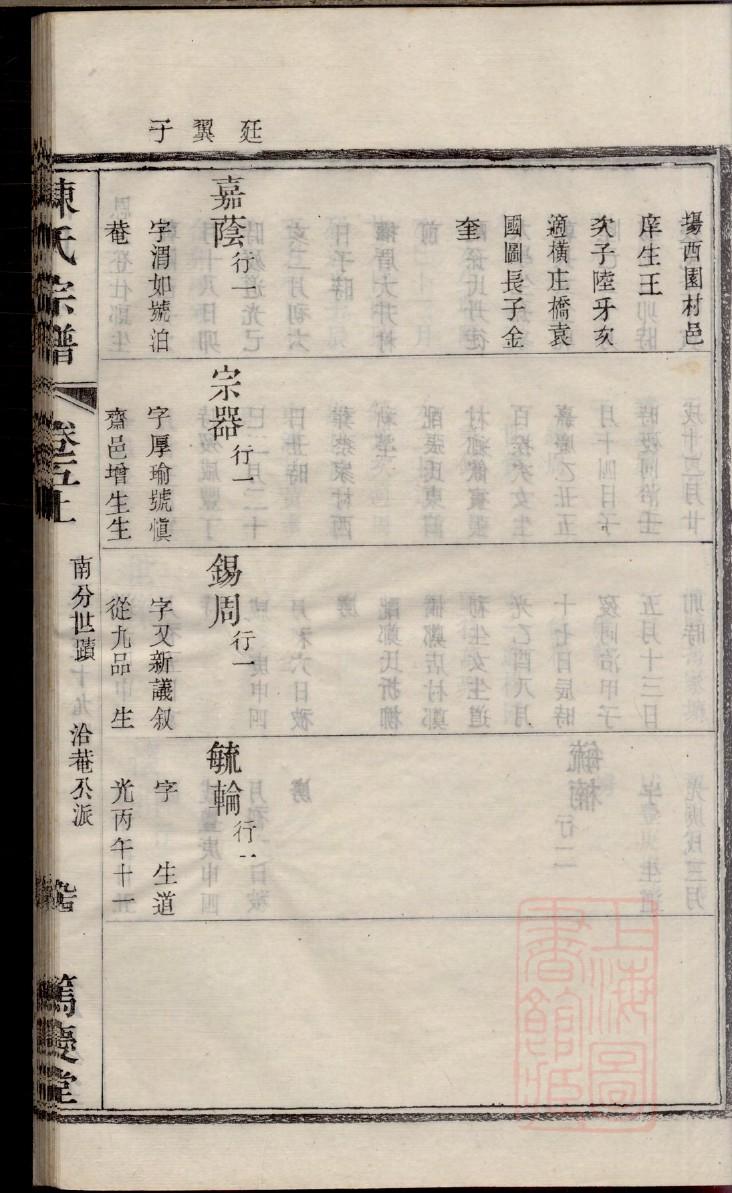 廷翼子
塲西園村邑
庠生王
次子陸牙亥
適橫庄橋袁
國圖長子金
奎
嘉蔭行一
字渭如號泊
菴
宗器行一
字厚瑜號愼
齋邑增生生
錫周行一
字又新議叙
從九品　生
毓輪行一
字　生道
光丙午十一
陳氏宗譜
卷五上
南分世蹟
洽菴公派
篤慶堂
上海圖書館藏